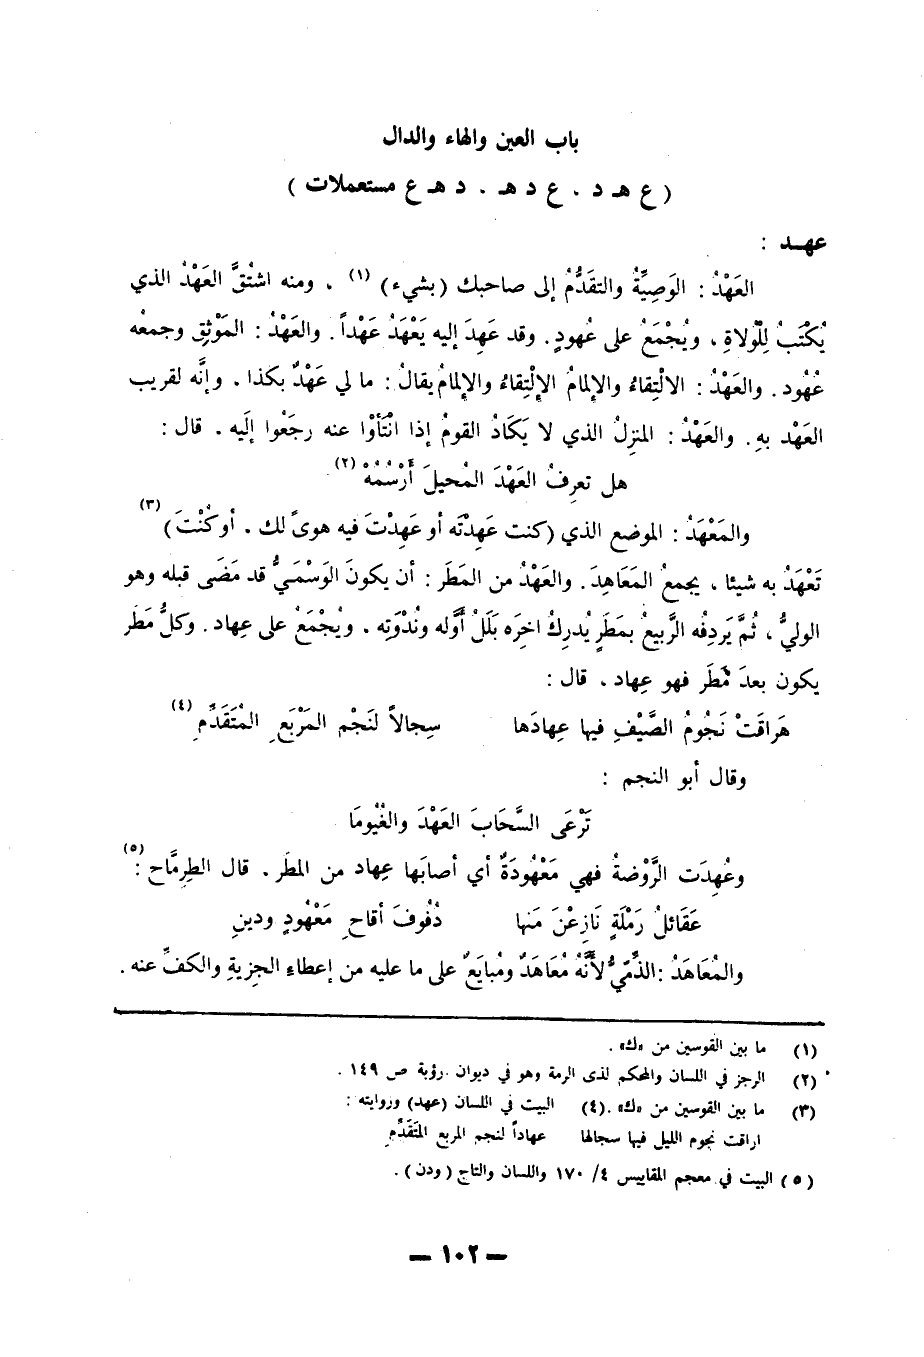 باب العين والهاء والدال
( ع هـ د . ع د هـ . د هـ ع مستعملات )
عهـد :
العَهْدُ : الوَصِيَّةُ والتقَدُّمُ إلى صاحبك (بشيء) (١) ، ومنه اشتُقَّ العَهْدُ الذي
يُكْتَبُ لِلْوُلاةِ ، ويُجْمَعُ على عُهودٍ. وقد عَهِدَ إليه يَعْهَدُ عَهْداً. والعَهْدُ : المَوْثِق وجمعُه
عُهُود. والعَهْدُ : الالْتِقاءُ والإلمامُ الإلْتِقاءُ والإلمامُ يقالُ : ما لي عَهْدٌ بكذا ، وإنَّه لقريب
العَهْد بهِ. والعَهْدُ : المنزِلُ الذي لا يَكَادُ القومُ إذا انْتَأوْا عنه رجَعُوا إلَيه . قال :
هل تعرِفُ العَهْدَ المُحيلَ أَرْسُمُهْ (٢)
والمَعْهَدُ : الموضع الذي (كنت عَهِدْتَه أو عَهِدْتَ فيه هوىً لك ، أو كُنْتَ ) (٣)
تَعْهَدُ به شيئا ، يجمعُ المَعَاهِدَ. والعَهْدُ من المَطَر : أن يكونَ الوَسْمَيُّ قد مَضَى قبله وهو
الوليُّ ، ثُمَّ يَردِفُه الرَّبيعُ بمَطَرٍ يُدرِكُ اخِرَه بَلَلُ أَوَّله ونُدْوَتِه ، ويُجْمَعُ على عِهاد. وكلُّ مَطَر
يكون بعدَ مَطَر فهو عِهاد ، قال :
هَراقَتْ نَجُومُ الصَّيْفِ فيها عِهادَها سِجالاً لنَجْم المَرْبَعِ المُتَقَدِّمِ (٤)
وقال أبو النجم :
تَرْعَى السَّحَابَ العَهْدَ والغُيْومَا
وعُهِدَت الرَّوْضةُ فهي مَعْهُودَةٌ أي أصابَها عِهاد من المطَر . قال الطِرِمَّاح : (٥)
عَقائلُ رَمْلَةٍ نَازعْنَ مَنها دُفُوفَ أقاحِ مَعْهُودٍ ودينِ
والمُعاهَدُ : الذِّمّيُّ لأَنَّهُ مُعَاهَدٌ ومُبايَعٌ على ما عليه من إعطاءِ الجِزيةِ والكفِّ عنه .
(١) ما بين القوسين من «ك» .
(٢) الرجز في اللسان والمحكم لذى الرمة وهو في ديوان رؤبة ص ١٤٩ .
(٣) ما بين القوسين من «ك» .(٤) البيت في اللسان (عهد) وروايته :
اراقت نجوم الليل فيها سجالها عهاداً لنجم المربع المتَقَدِّمِ
( ٥ ) البيت في معجم المقاييس ٤/ ١٧٠ واللسان والتاج ( ودن ) .
— ١٠٢ —